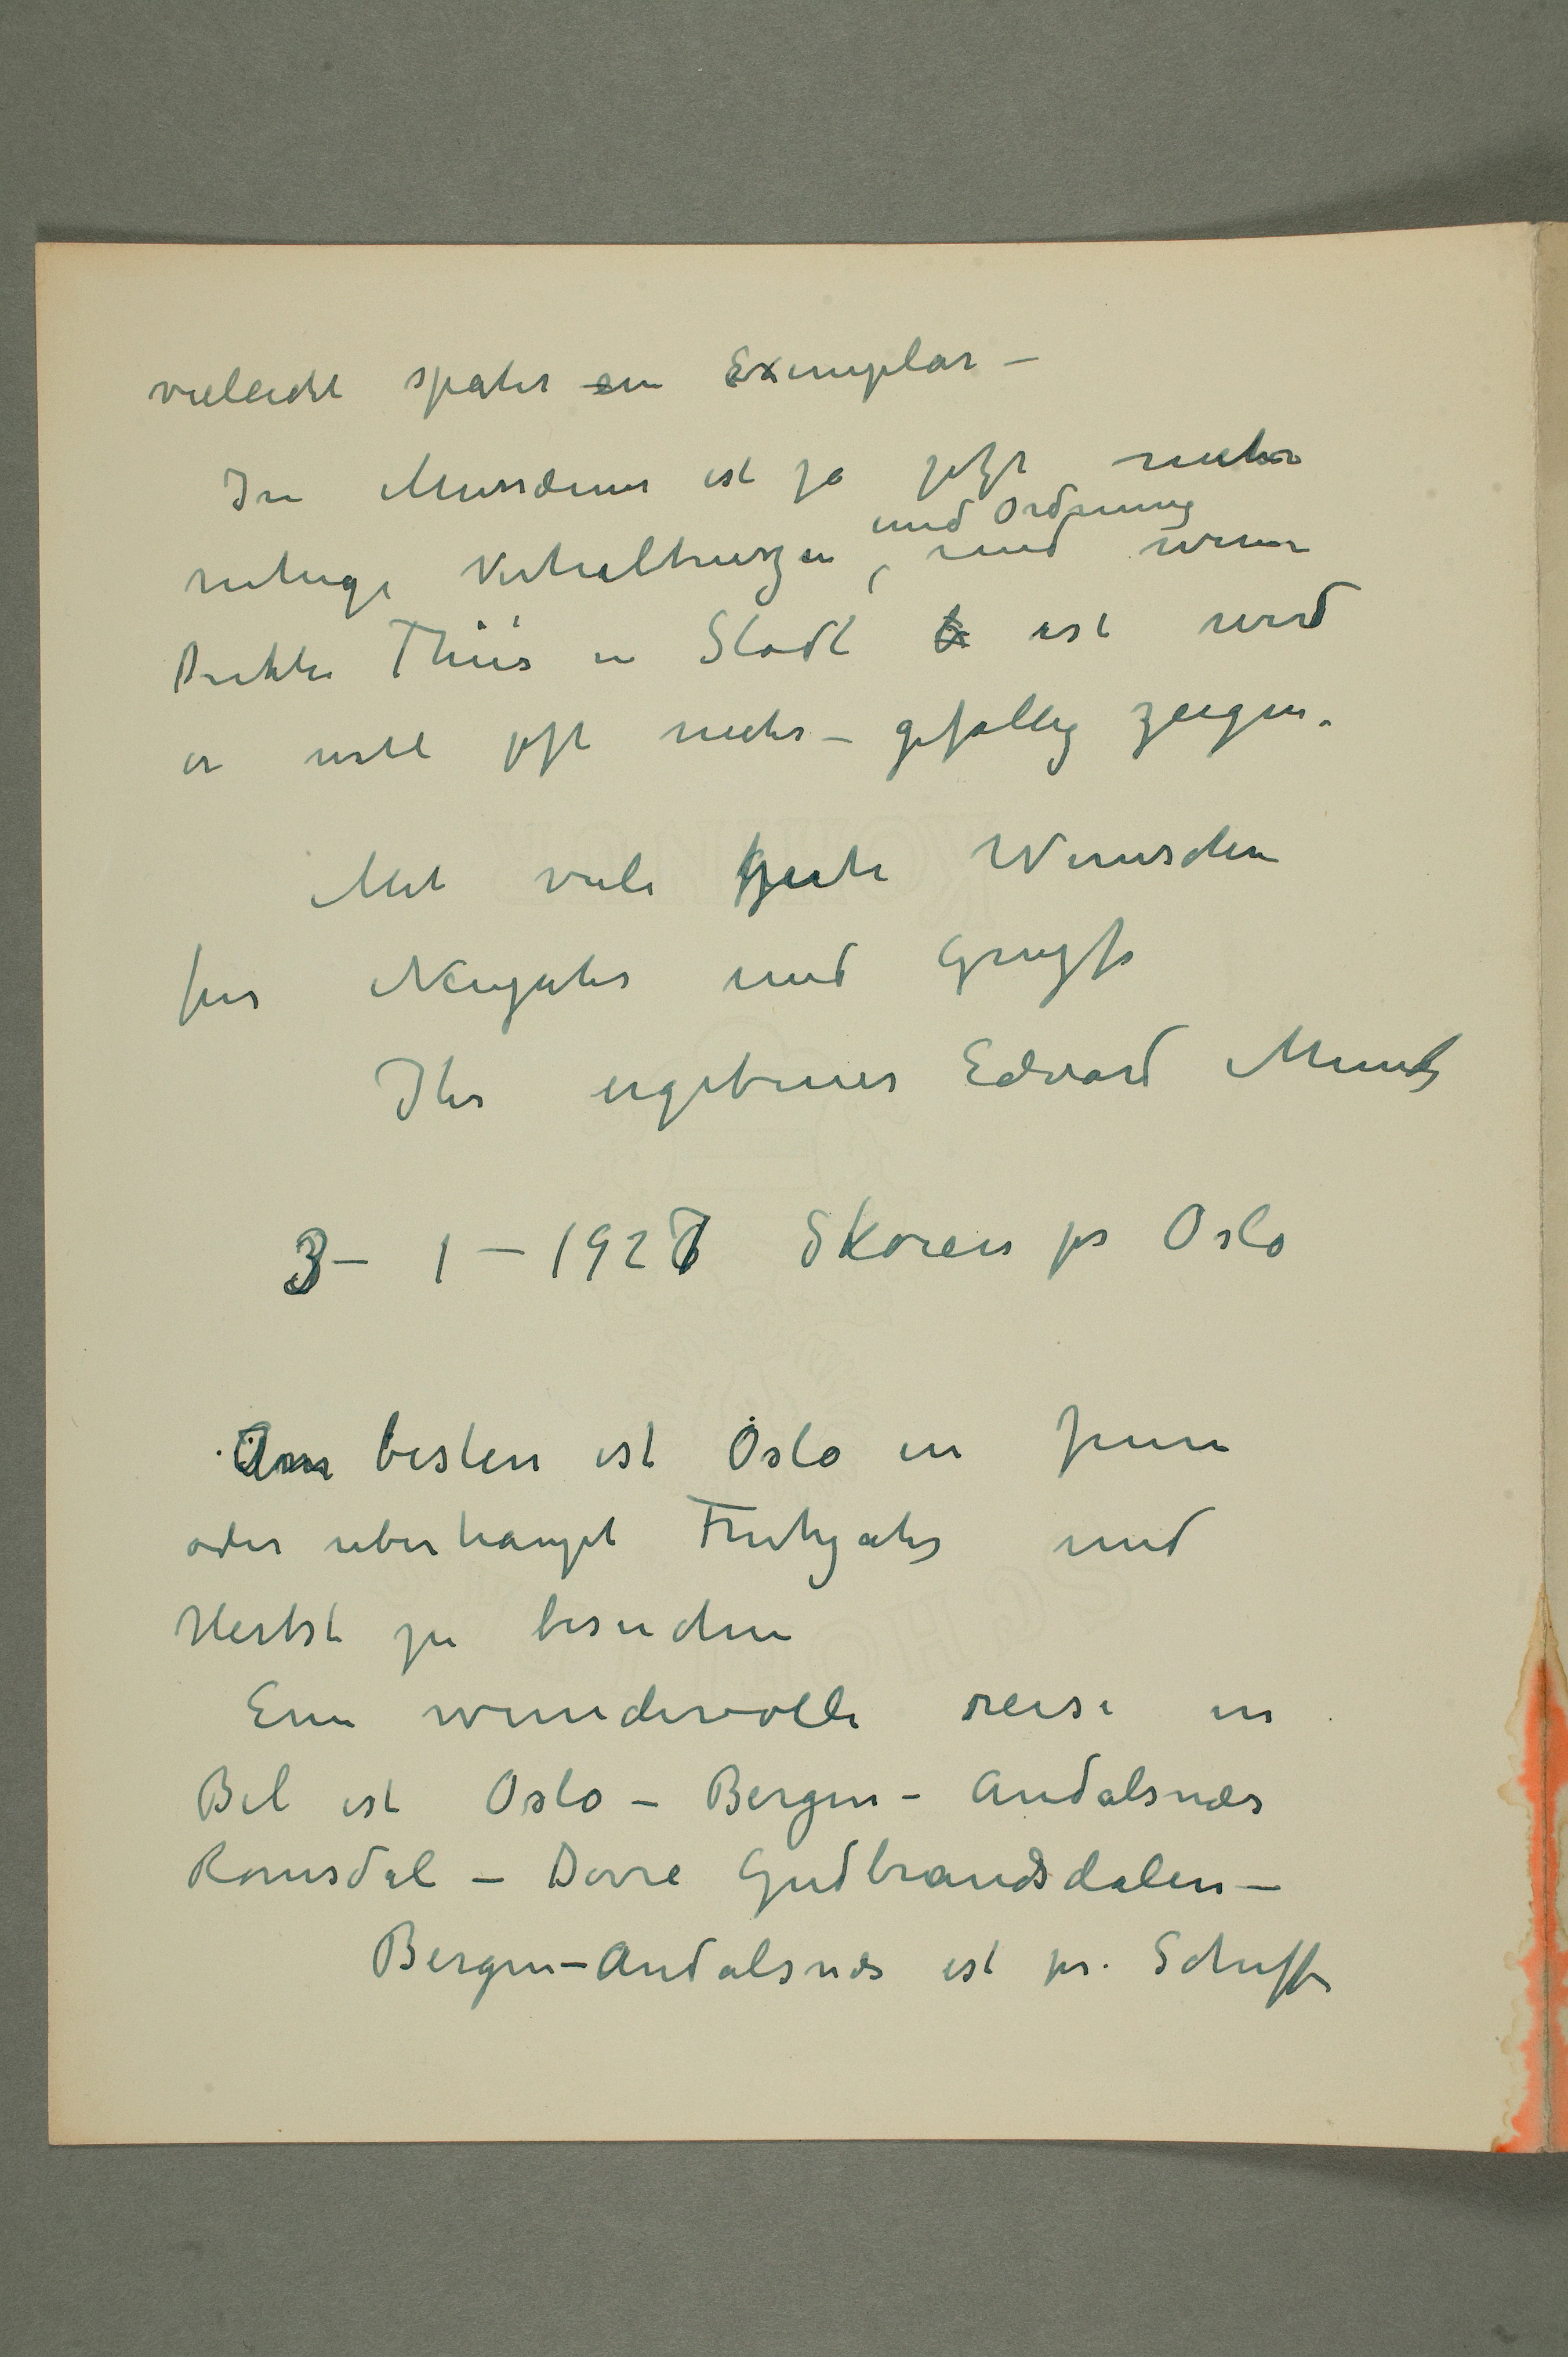 vielleicht später ein Exemplar –
In Musæum ist ja jetzt mehr
und Ordnung
ruhige Verhaltnisze, und wenn
Direktor Thiis in Stadt ist wird
er wohl jetzt mehr – gefallig zeigen.
Mit viele gute Wunschen
fur Neujahr und Grusze
Ihr ergebener Edvard Munch
3 – 1 – 1927 Skøien pr Oslo
Am besten ist Oslo in Juni
oder uberhaupt Fruhjahr und
Herbst zu besuchen
Eine wundervolle reise in
Bil ist Oslo – Bergen – Andalsnæs
Romsdal – Dovre Gudbrandsdalen –
Bergen – Andalsnæs ist pr. Schiff